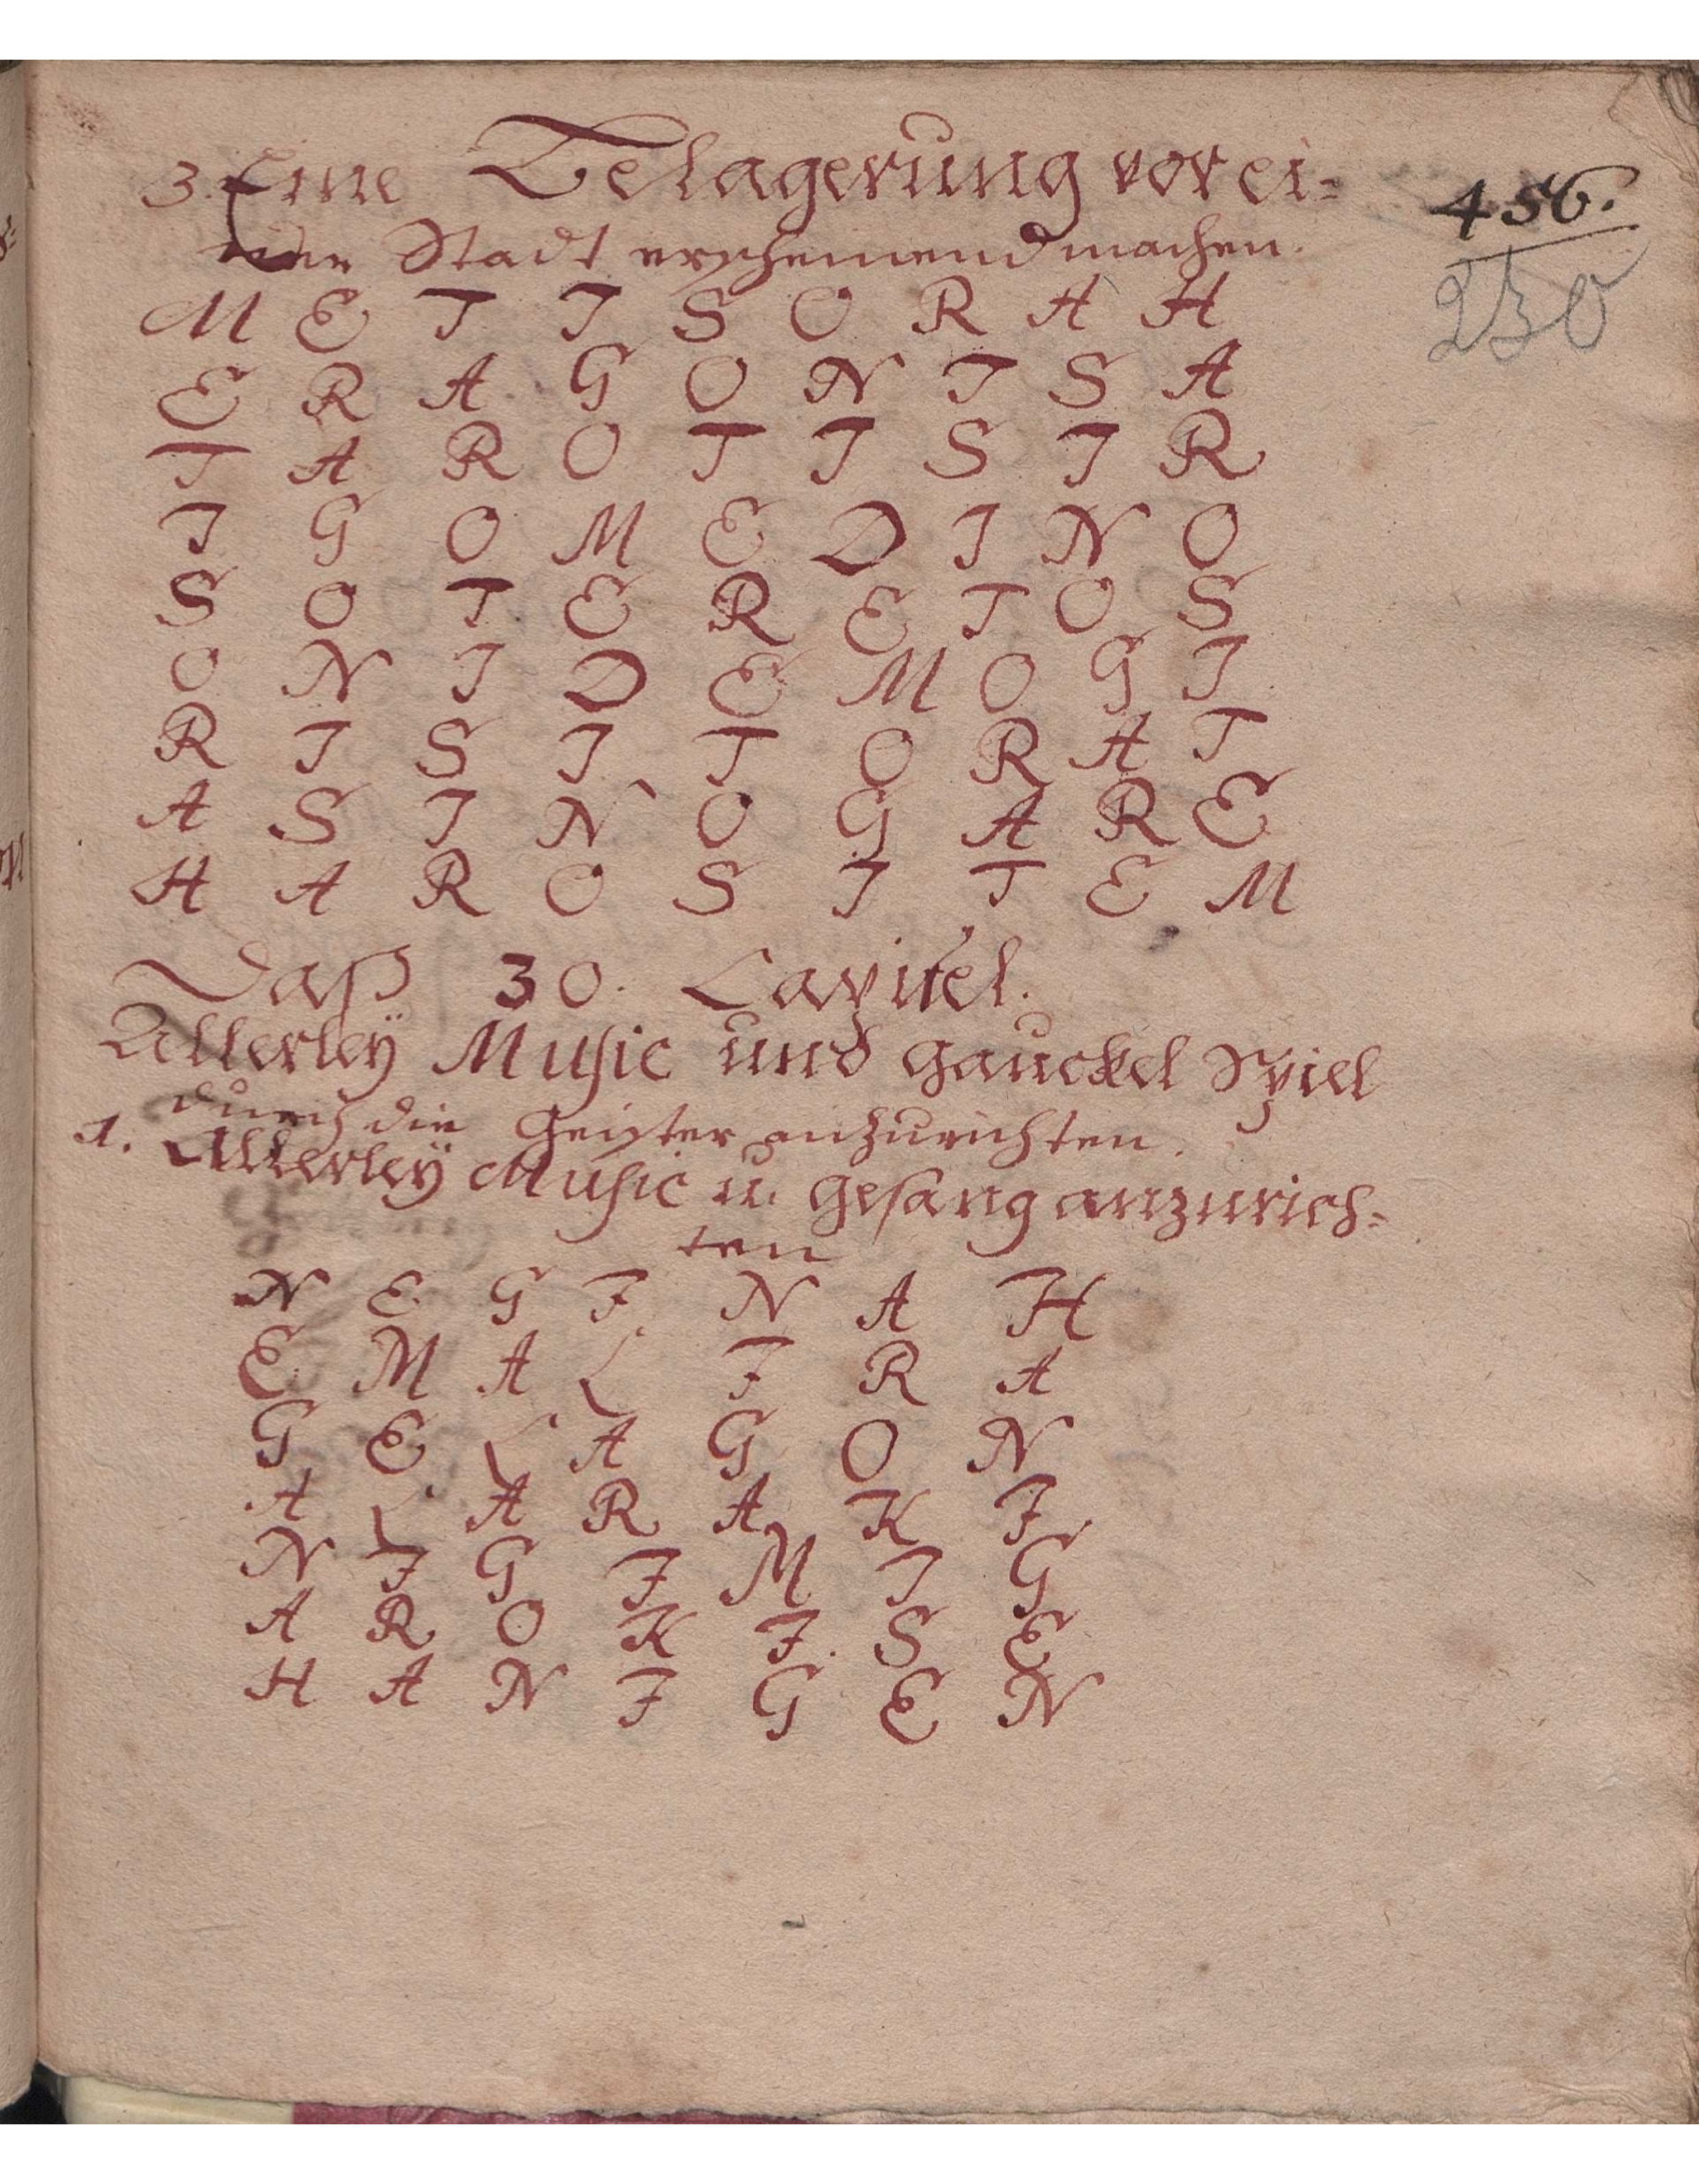 3. Eine Belagerung vor ei=
456.
ner Stadt erscheinend machen.
230
M E T I S O R A H
E R A G O N I S A
T A R O T I S I R
I G O M E D I N O
S O T E R E T O S
O N I D E M O G I
R I S I T O R A T
A S I N O G A R E
H A R O S I T E M
Daß 30. Capitel.
Allerleÿ Music und Gauckel Spiel
durch die Geister anzurichten.
1. Allerleÿ Music u. Gesang anzurich=
ten
N E G I N A H
E M A L I R A
G E L A G O N
A L A R A K I
N I G I M I G
A R O K I S E
H A N I G E N